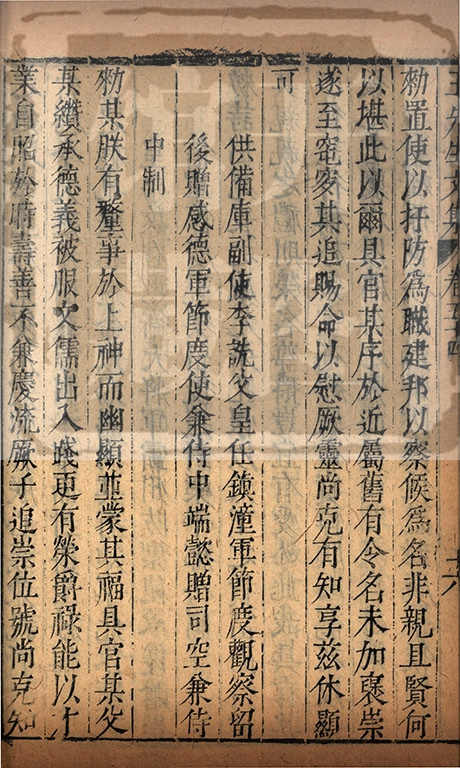 王先生文集 卷五十四 十六
勑置使以扞防爲職建邦以察候爲名非親且賢何
以堪此以爾具官某序於近屬舊有令名未加襃崇
遂至窀穸其追賜命以慰厥靈尚克有知享茲休顯
可
供備庫副使李詵父皇任鎮潼軍節度觀察留
後贈感德軍節度使兼侍中端懿贈司空兼侍
中制
勑某朕有釐事於上神而幽顯並蒙其福具官某父
某纘承德義被服文儒出入踐更有榮爵祿能以才
業自昭於時壽善不兼慶流厥子追崇位號尚克知